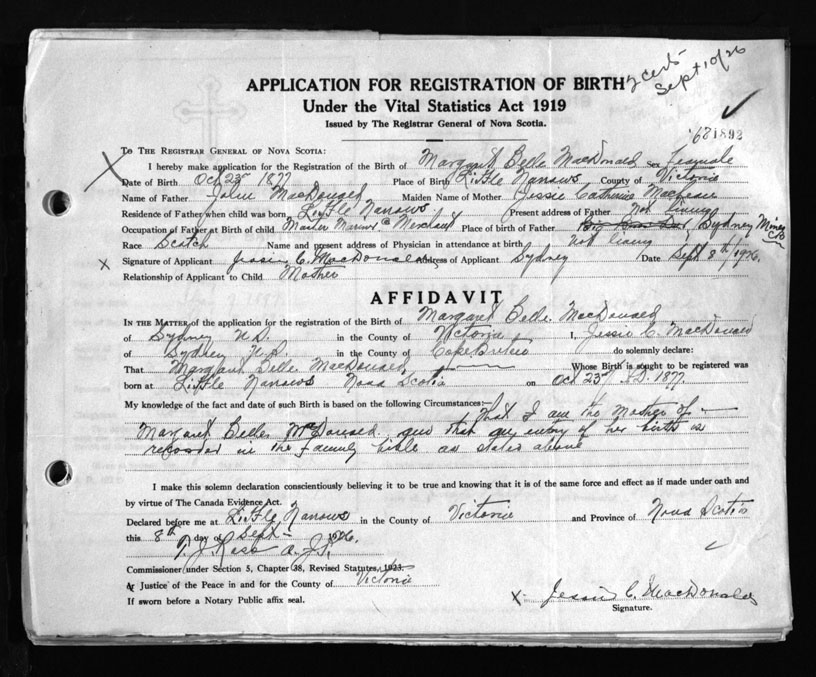 2 certs
Sept 10/26
APPLICATION FOR REGISTRATION OF BIRTH
Under the Vital Statistics Act 1919
Issued by The Registrar General of Nova Scotia.
621892
To The Registrar General of Nova Scotia:
I hereby make application for the Registration of the Birth of Margaret Belle MacDonald Sex Female
Date of Birth Oct 23rd 1877 Place of Birth Little Narrows County of Victoria
Name of Father John MacDonald Maiden Name of Mother Jessie Catherine MacLean
Residence of Father when child was born Little Narrows Present address of Father Not living
Occupation of Father at Birth of child Master Mariner & Merchant Place of birth of Father Sydney Mines CB
Race Scotch Name and present address of Physician in attendance at birth not living
x Signature of Applicant Jessie C. MacDonald Address of Applicant Sydney Date Sept 8th/1926.
Relationship of Applicant to Child Mother
AFFIDAVIT
In the Matter of the application for the registration of the Birth of Margaret Belle MacDonald
of Sydney N.S. in the County of Victoria I, Jessie C. MacDonald
of Sydney N.S. in the County of Cape Breton do solemnly declare:
That Margaret Belle MacDonald Whose Birth is sought to be registered was
born at Little Narrows Nova Scotia on Oct 23rd A.D. 1877.
My knowledge of the fact and date of such Birth is based on the following Circumstances:- That I am the Mother of
Margaret Belle McDonald and that an entry of her birth is
recorded in the Family bible as stated above
I make this solemn declaration conscientiously believing it to be true and knowing that it is of the same force and effect as if made under oath and
by virtue of The Canada Evidence Act.
Declared before me at Little Narrows in the County of Victoria and Province of Nova Scotia
this 8th day of Sept 1926.
J. Ross
Commissioner under Section 5, Chapter 38, Revised Statutes, 1923.
A Justice of the Peace in and for the County of Victoria
If sworn before a Notary Public affix seal.
x Jessie C. MacDonald
Signature.